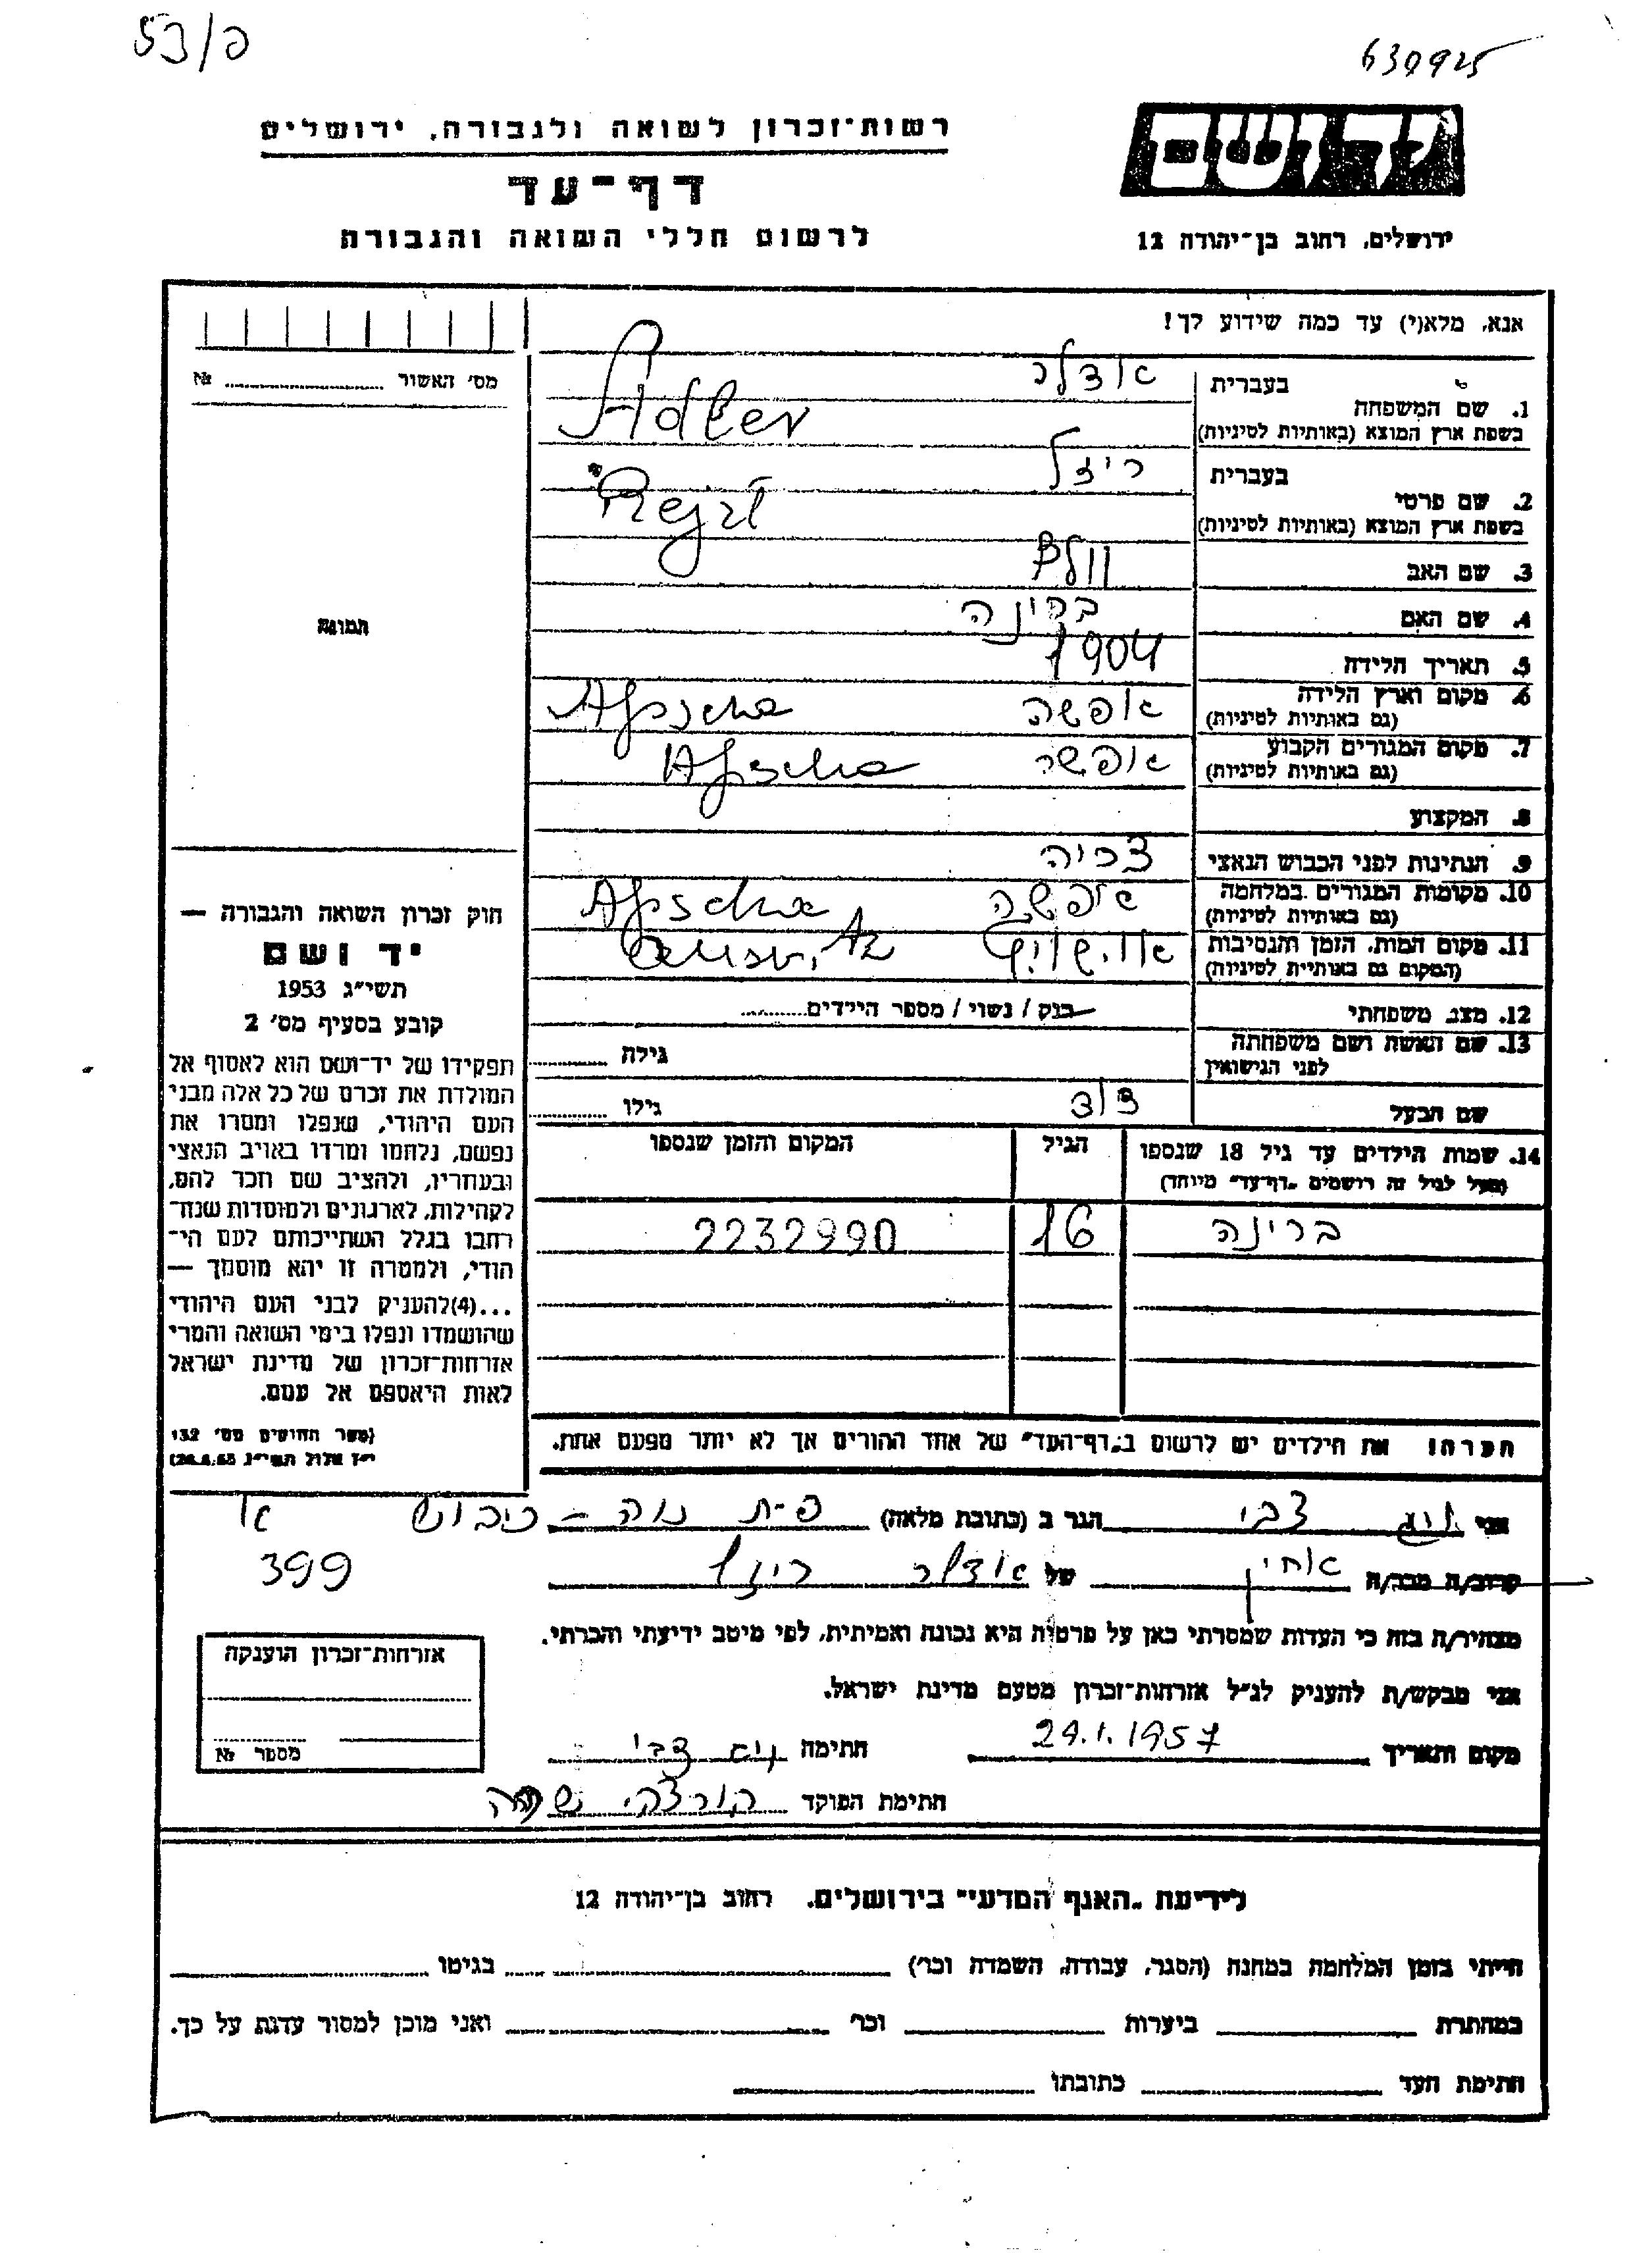 53/פ
630925
ידושם
רשות־זכרון לשואה ולגבורה, ירושלים
דף־עד
ירושלים, רחוב בן־יהודה 12
לרשום חללי השואה והגבורה
אנא, מלא(י) עד כמה שידוע לך!
מס׳ האשור ........ №
1. שם המשפחה
בעברית אדלר
בשפת ארץ המוצא (באותיות לטיניות) Adler
2. שם פרטי
בעברית ריזל
בשפת ארץ המוצא (באותיות לטיניות) Rejzl
3. שם האב וולף
4. שם האם ברינה
5. תאריך הלידה 1904
6. מקום וארץ הלידה אפשה Apscha
(גם באותיות לטיניות)
7. מקום המגורים הקבוע אפשה Apscha
(גם באותיות לטיניות)
8. המקצוע
9. הנתינות לפני הכבוש הנאצי צכיה
10. מקומות המגורים במלחמה אפשה Apscha
(גם באותיות לטיניות)
11. מקום המות, הזמן והנסיבות אושויץ
(המקום גם באותיות לטיניות)
12. מצב משפחתי רנק / נשוי / מספר הילדים........
13. שם האשה ושם משפחתה
לפני הנישואין גילה ........
שם הבעל דוד גילו ........
14. שמות הילדים עד גיל 18 שנספו
(מעל לגיל זה רושמים „דף־עד״ מיוחד)
הגיל
המקום והזמן שנספו
ברינה 16 2232990
הערה! את הילדים יש לרשום ב„דף־העד״ של אחד ההורים אך לא יותר מפעם אחת.
תמונה
חוק זכרון השואה והגבורה —
יד ושם
תשי״ג 1953
קובע בסעיף מס׳ 2
תפקידו של יד־ושם הוא לאסוף אל
המולדת את זכרם של כל אלה מבני
העם היהודי, שנפלו ומסרו את
נפשם, נלחמו ומרדו באויב הנאצי
ובעוזריו, ולהציב שם וזכר להם,
לקהילות, לארגונים ולמוסדות שנח־
רבו בגלל השתייכותם לעם הי־
הודי, ולמטרה זו יהא מוסמך —
...(4)להעניק לבני העם היהודי
שהושמדו ונפלו בימי השואה והמרי
אזרחות־זכרון של מדינת ישראל
לאות היאספם אל עמם.
(ספר החוקים מס׳ 132
י״ז אלול תשי״ג 28.8.53)
אני צבי הגר ב (כתובת מלאה) פ־ת נוה - כיבוש א/
399
קרוב/ה מכר/ה אחי של אדלר ריזל
מצהיר/ה בזה כי העדות שמסרתי כאן על פרטיה היא נכונה ואמיתית, לפי מיטב ידיעתי והכרתי.
אני מבקש/ת להעניק לנ״ל אזרחות־זכרון מטעם מדינת ישראל.
מקום ותאריך 29.1.1957 חתימה צבי
חתימת הפוקד
אזרחות־זכרון הוענקה
מספר №
לידיעת „האגף המדעי״ בירושלים, רחוב בן־יהודה 12
הייתי בזמן המלחמה במחנה (הסגר, עבודה, השמדה וכר׳) בגיטו
במחתרת ביערות וכר׳ ואני מוכן למסור עדות על כך.
חתימת העד כתובתו